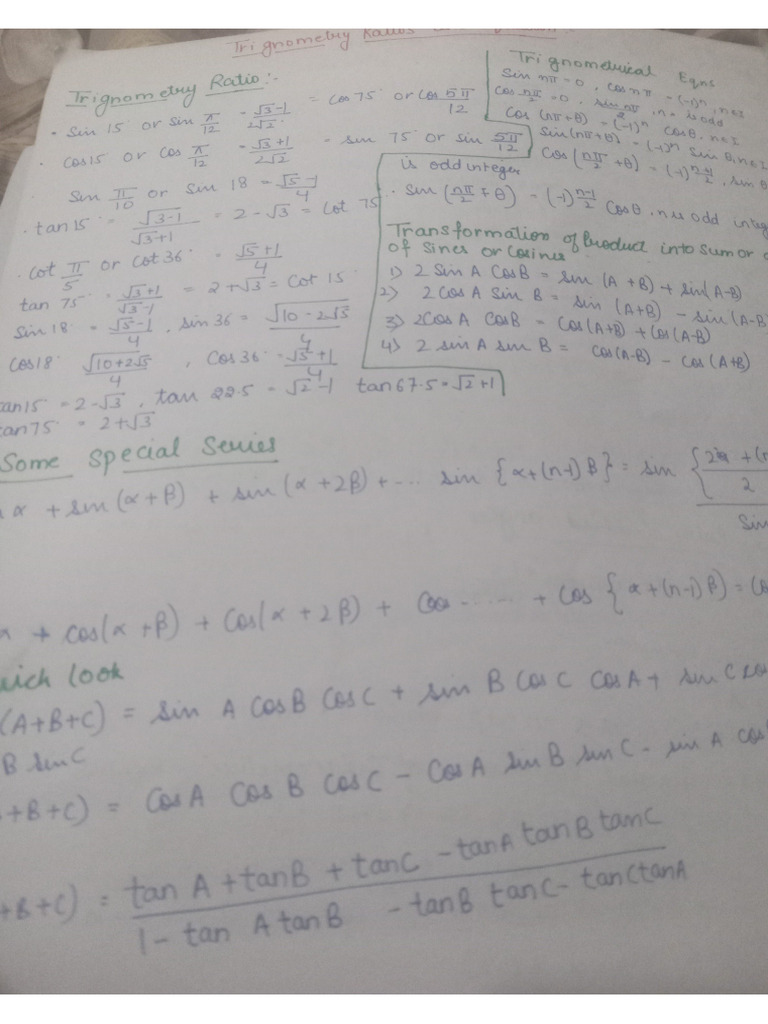 Trignometry Ratios
Trignometry Ratio :-
• Sin 15° or Sin π/12 = √3-1/2√2 = cos 75° or cos 5π/12
• cos15 or cos π/12 = √3+1/2√2 = sin 75 or sin 5π/12
Sin π/10 or Sin 18 = √5-1/4
• tan 15° = √3-1/√3+1 = 2-√3 = cot 75
• cot π/5 or cot 36° = √5+1/4
tan 75° = √3+1/√3-1 = 2+√3 = cot 15°
Sin 18° = √5-1/4, sin 36 = √10-2√5/4
cos18° √10+2√5/4, cos 36° = √5+1/4
tan15 = 2-√3, tan 22.5 = √2-1 tan 67.5 = √2+1
tan 75° = 2+√3
Trignometrical Eqns
Sin nπ = 0, cos nπ = (-1)ⁿ, n∈I
cos nπ/2 = 0, sin nπ/2, n is odd
cos (nπ+θ) = (-1)ⁿ cosθ, n∈I
Sin(nπ+θ) = (-1)ⁿ Sinθ, n∈I
cos(nπ/2 + θ) = (-1) n+1/2, sin θ
is odd integer
• sin (nπ/2 + θ) = (-1) n-1/2 cosθ, n is odd
Transformation of Product into Sum or
of Sines or Cosines
1) 2 Sin A CosB = sin (A+B) + sin(A-B)
2) 2 Cos A Sin B = sin (A+B) - sin(A-B
3) 2Cos A CosB = Cos(A+B) + Cos(A-B)
4) 2 sin A sin B = cos(A-B) - cos (A+B)
Some Special Series
α + sin(α+β) + sin(α+2β) + ... sin {α+(n-1)β} = sin {2α + (n /2
Sin
α + cos(α+β) + cos(α+2β) + Cos ...... + cos {α+(n-1)β) = Co
uick look
(A+B+C) = sin A CosB CosC + sin B Cos C Cos A + sin C cos
B sinC
+B+C) = Cos A Cos B Cos C - Cos A sin B sin C - sin A Cos
+B+C) = tan A + tanB + tanC - tanA tanB tanC / 1 - tan A tanB - tanB tanC - tanC tanA